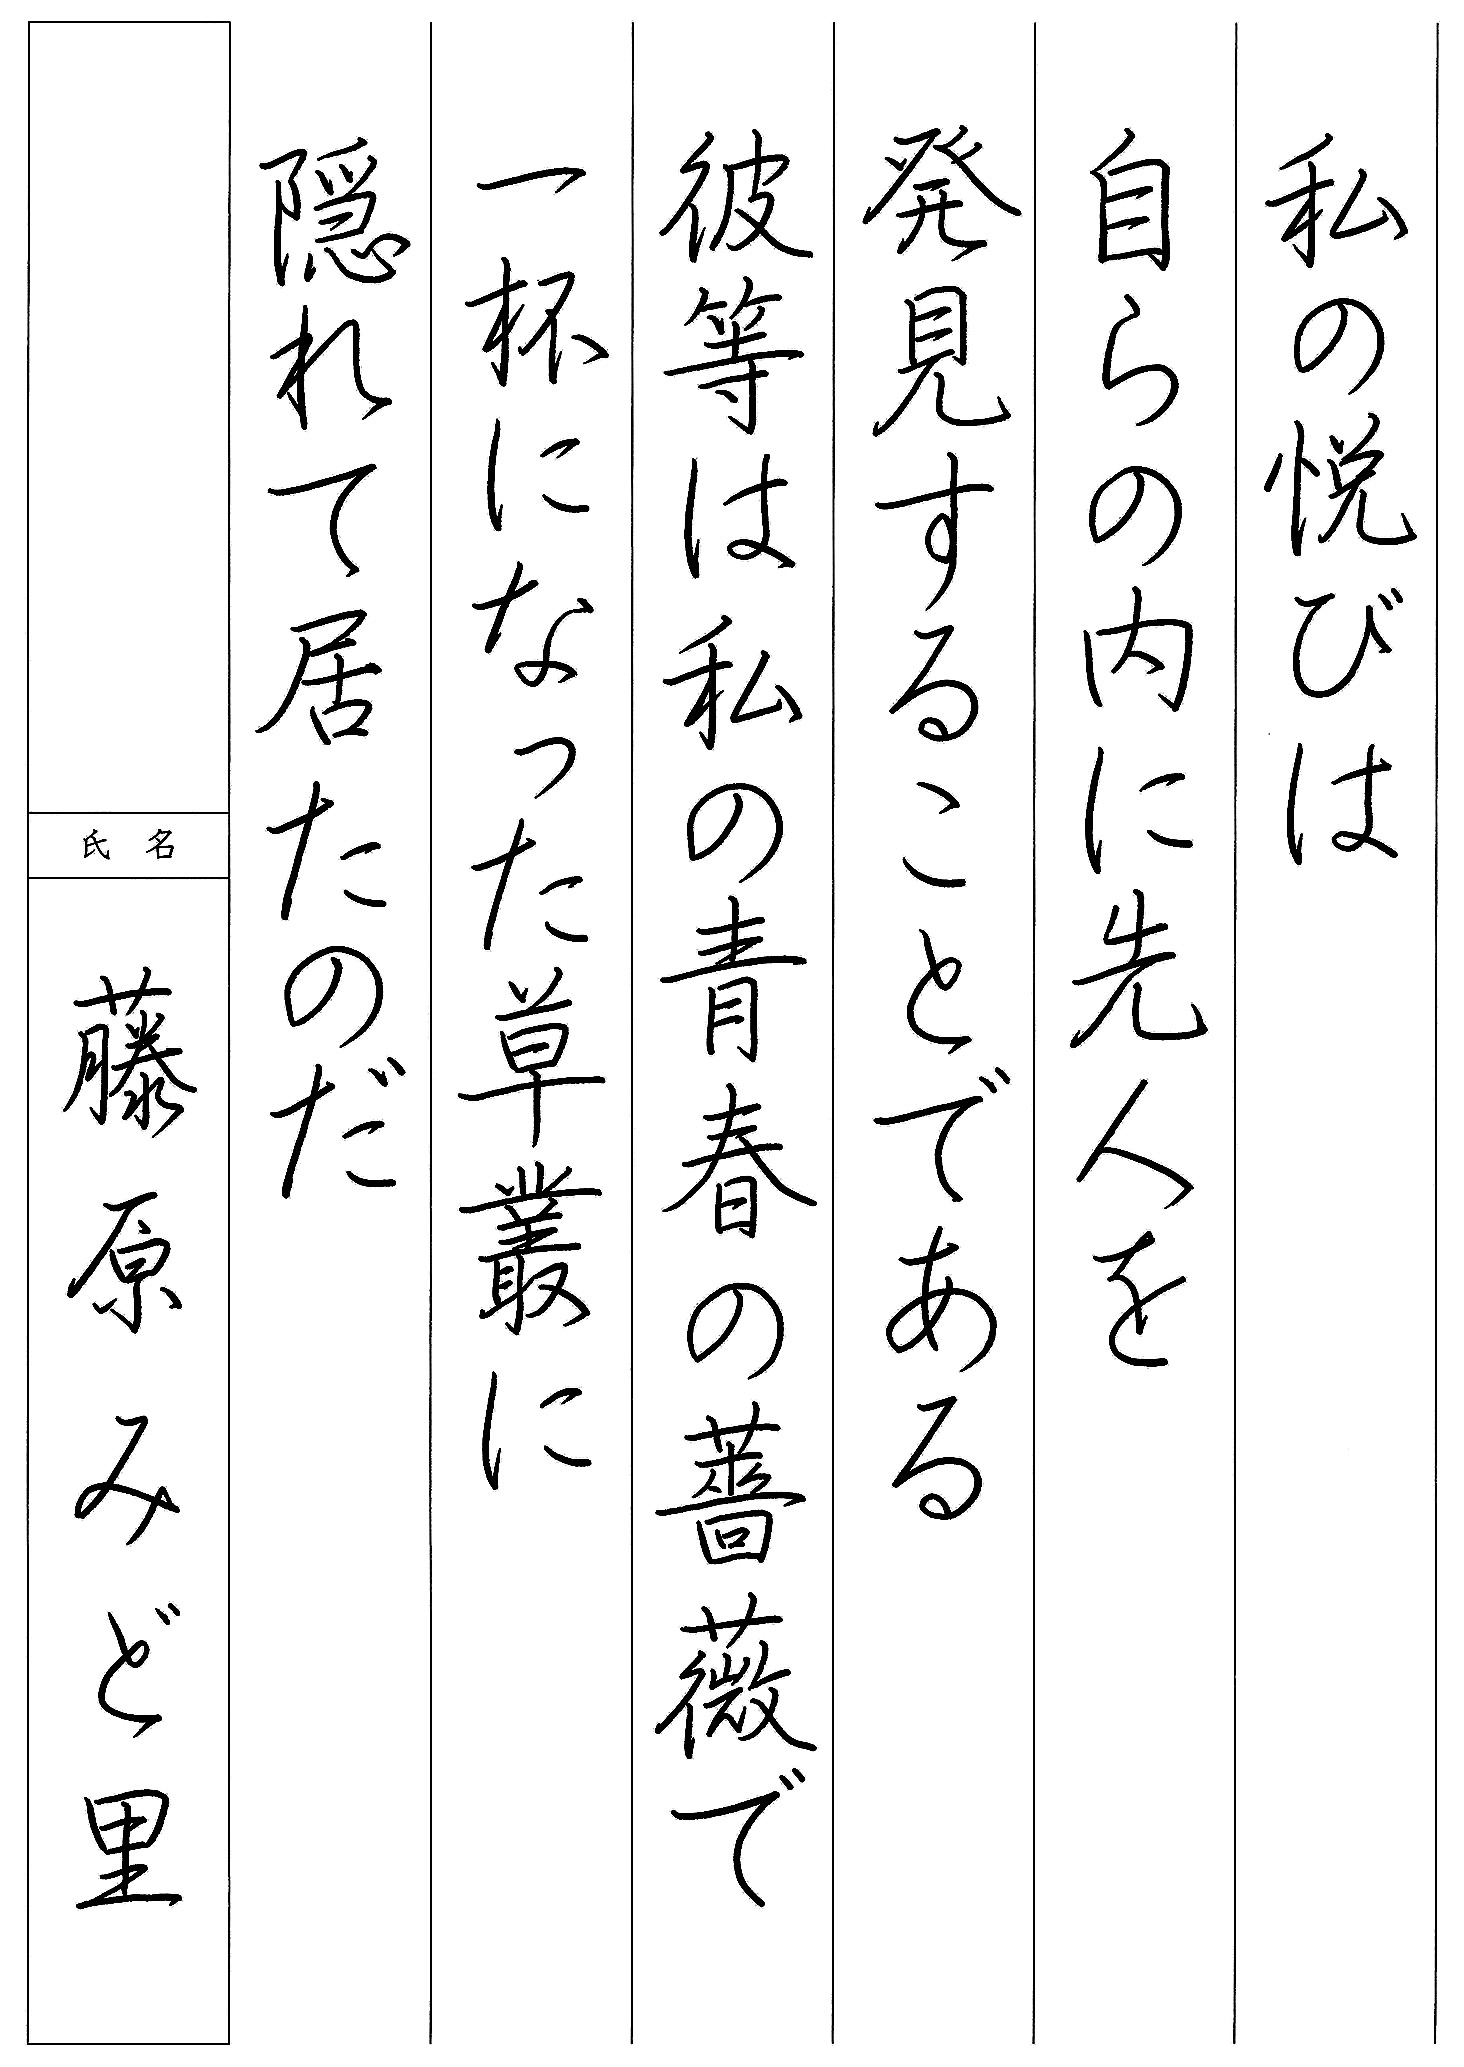 私の悦びは
自らの内に先人を
発見することである
彼等は私の青春の薔薇で
一杯になった草叢に
隠れて居たのだ
氏名
藤原みど里